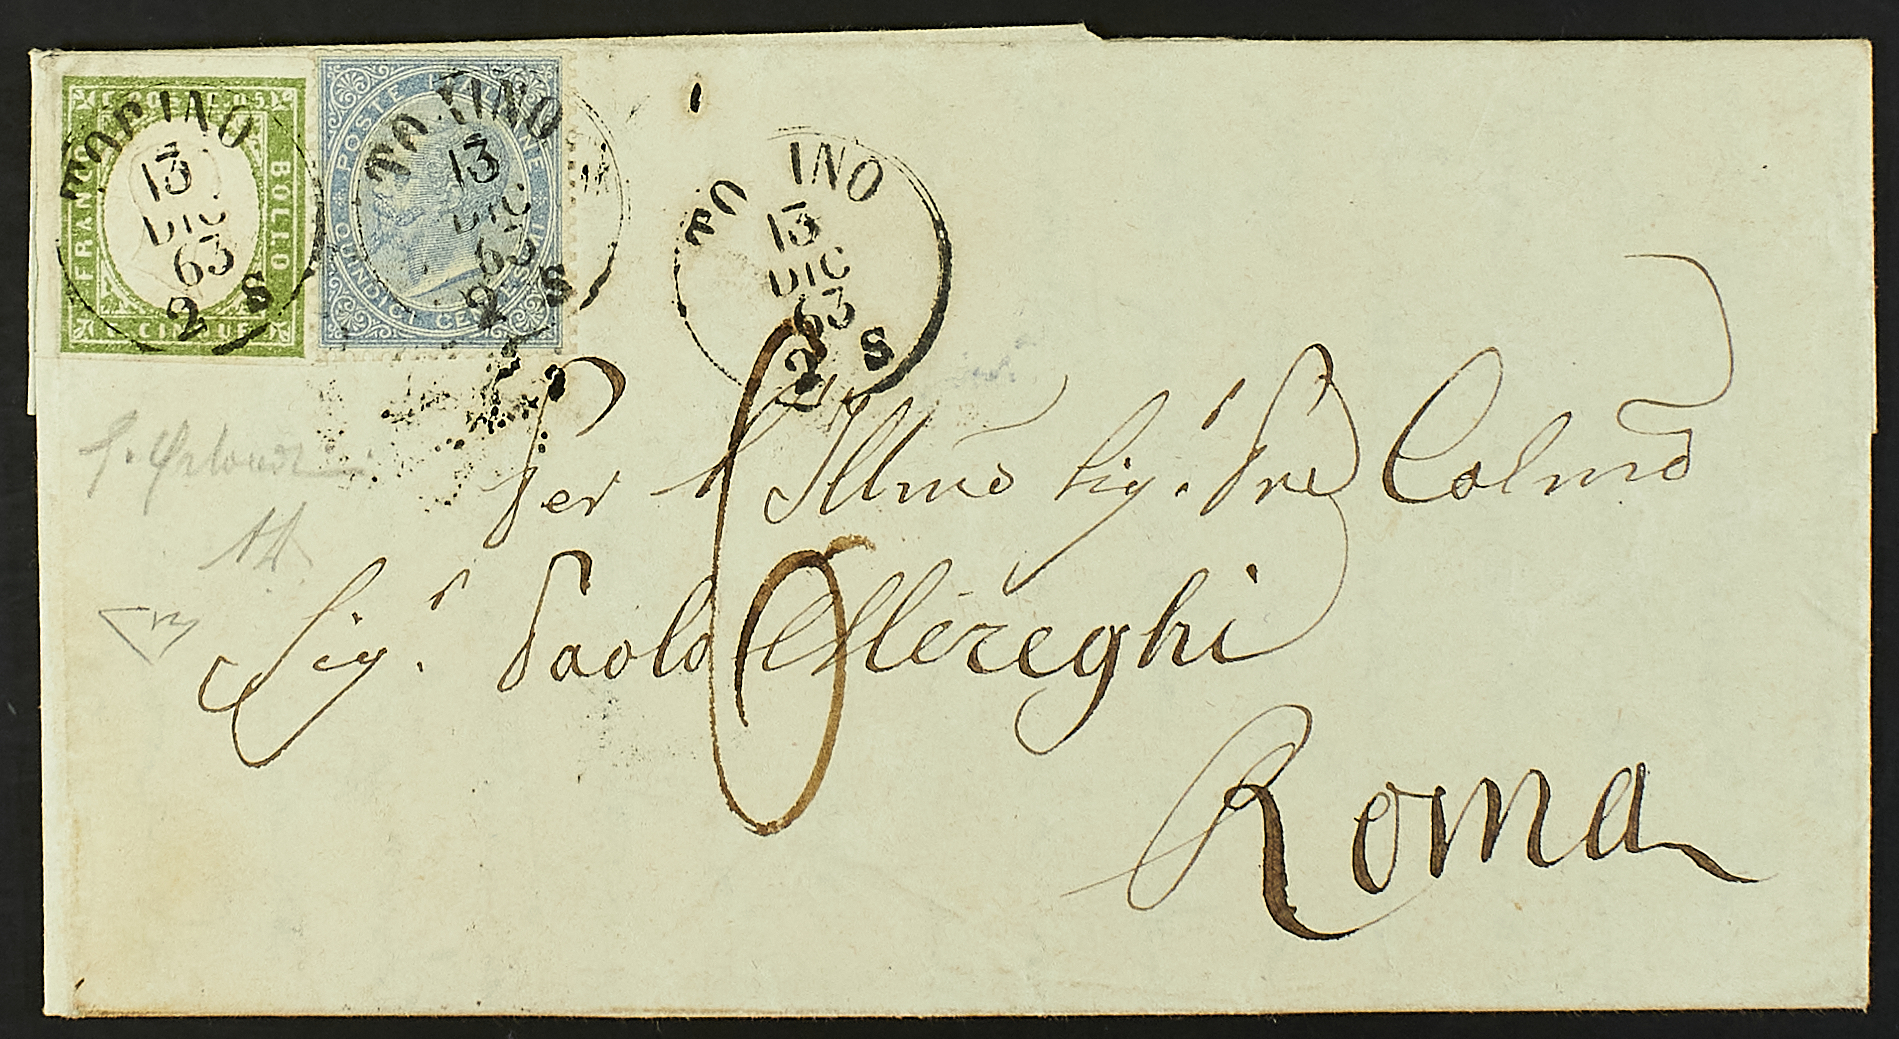 C. POSTE C. 5
FRANCO
BOLLO
CINQUE
POSTE ITALIANE
QUINDICI CENTESIMI
TORINO
13
DIC
63
2 S
TORINO
13
DIC
63
2 S
TO INO
13
DIC
63
2 S
6
Per l'Illmo Sig.r Pne Colmo
Sig.r Paolo Mereghi
Roma